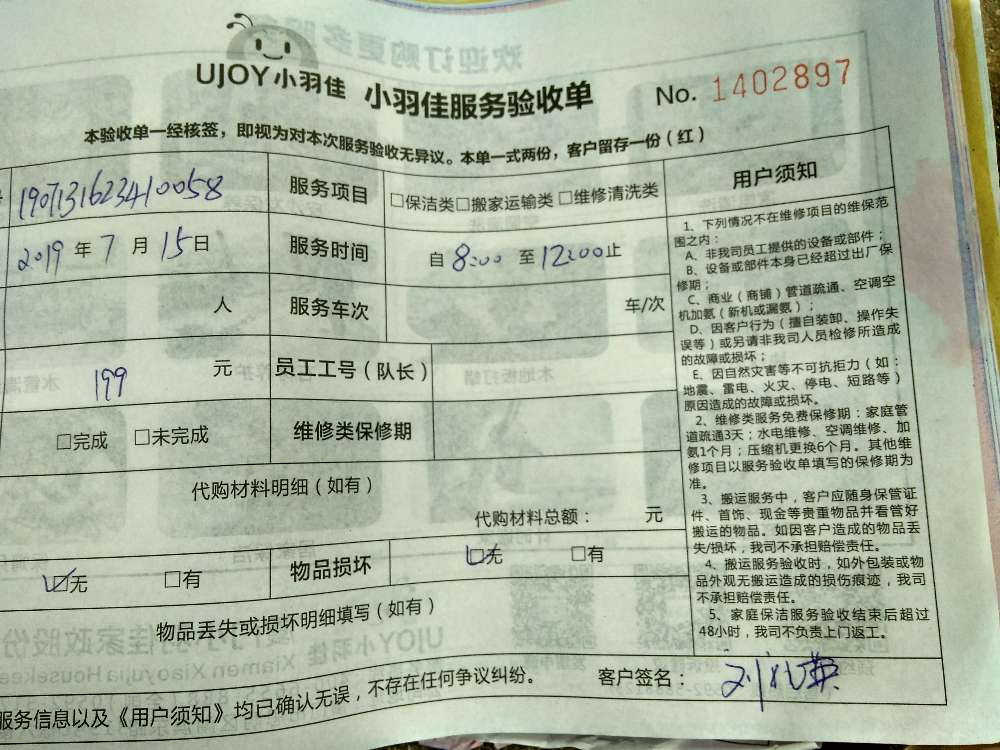 UJOY小羽佳 小羽佳服务验收单 No. 1402897
本验收单一经核签，即视为对本次服务验收无异议。本单一式两份，客户留存一份（红）
1907131623410058 服务项目 □保洁类□搬家运输类□维修清洗类
2019年7月15日 服务时间 自8:00至12:00止
人 服务车次 车/次
199元 员工工号（队长）
□完成 □未完成 维修类保修期
代购材料明细（如有）
代购材料总额： 元
☑无 □有 物品损坏 ☑无 □有
物品丢失或损坏明细填写（如有）
服务信息以及《用户须知》均已确认无误，不存在任何争议纠纷。 客户签名：
用户须知
1、下列情况不在维修项目的维保范
围之内：
A、非我司员工提供的设备或部件；
B、设备或部件本身已经超过出厂保
修期；
C、商业（商铺）管道疏通、空调空
机加氨（新机或漏氨）；
D、因客户行为（擅自装卸、操作失
误等）或另请非我司人员检修所造成
的故障或损坏；
E、因自然灾害等不可抗拒力（如：
地震、雷电、火灾、停电、短路等）
原因造成的故障或损坏。
2、维修类服务免费保修期：家庭管
道疏通3天；水电维修、空调维修、加
氨1个月；压缩机更换6个月。其他维
修项目以服务验收单填写的保修期为
准。
3、搬运服务中，客户应随身保管证
件、首饰、现金等贵重物品并看管好
搬运的物品。如因客户造成的物品丢
失/损坏，我司不承担赔偿责任。
4、搬运服务验收时，如外包装或物
品外观无搬运造成的损伤痕迹，我司
不承担赔偿责任。
5、家庭保洁服务验收结束后超过
48小时，我司不负责上门返工。